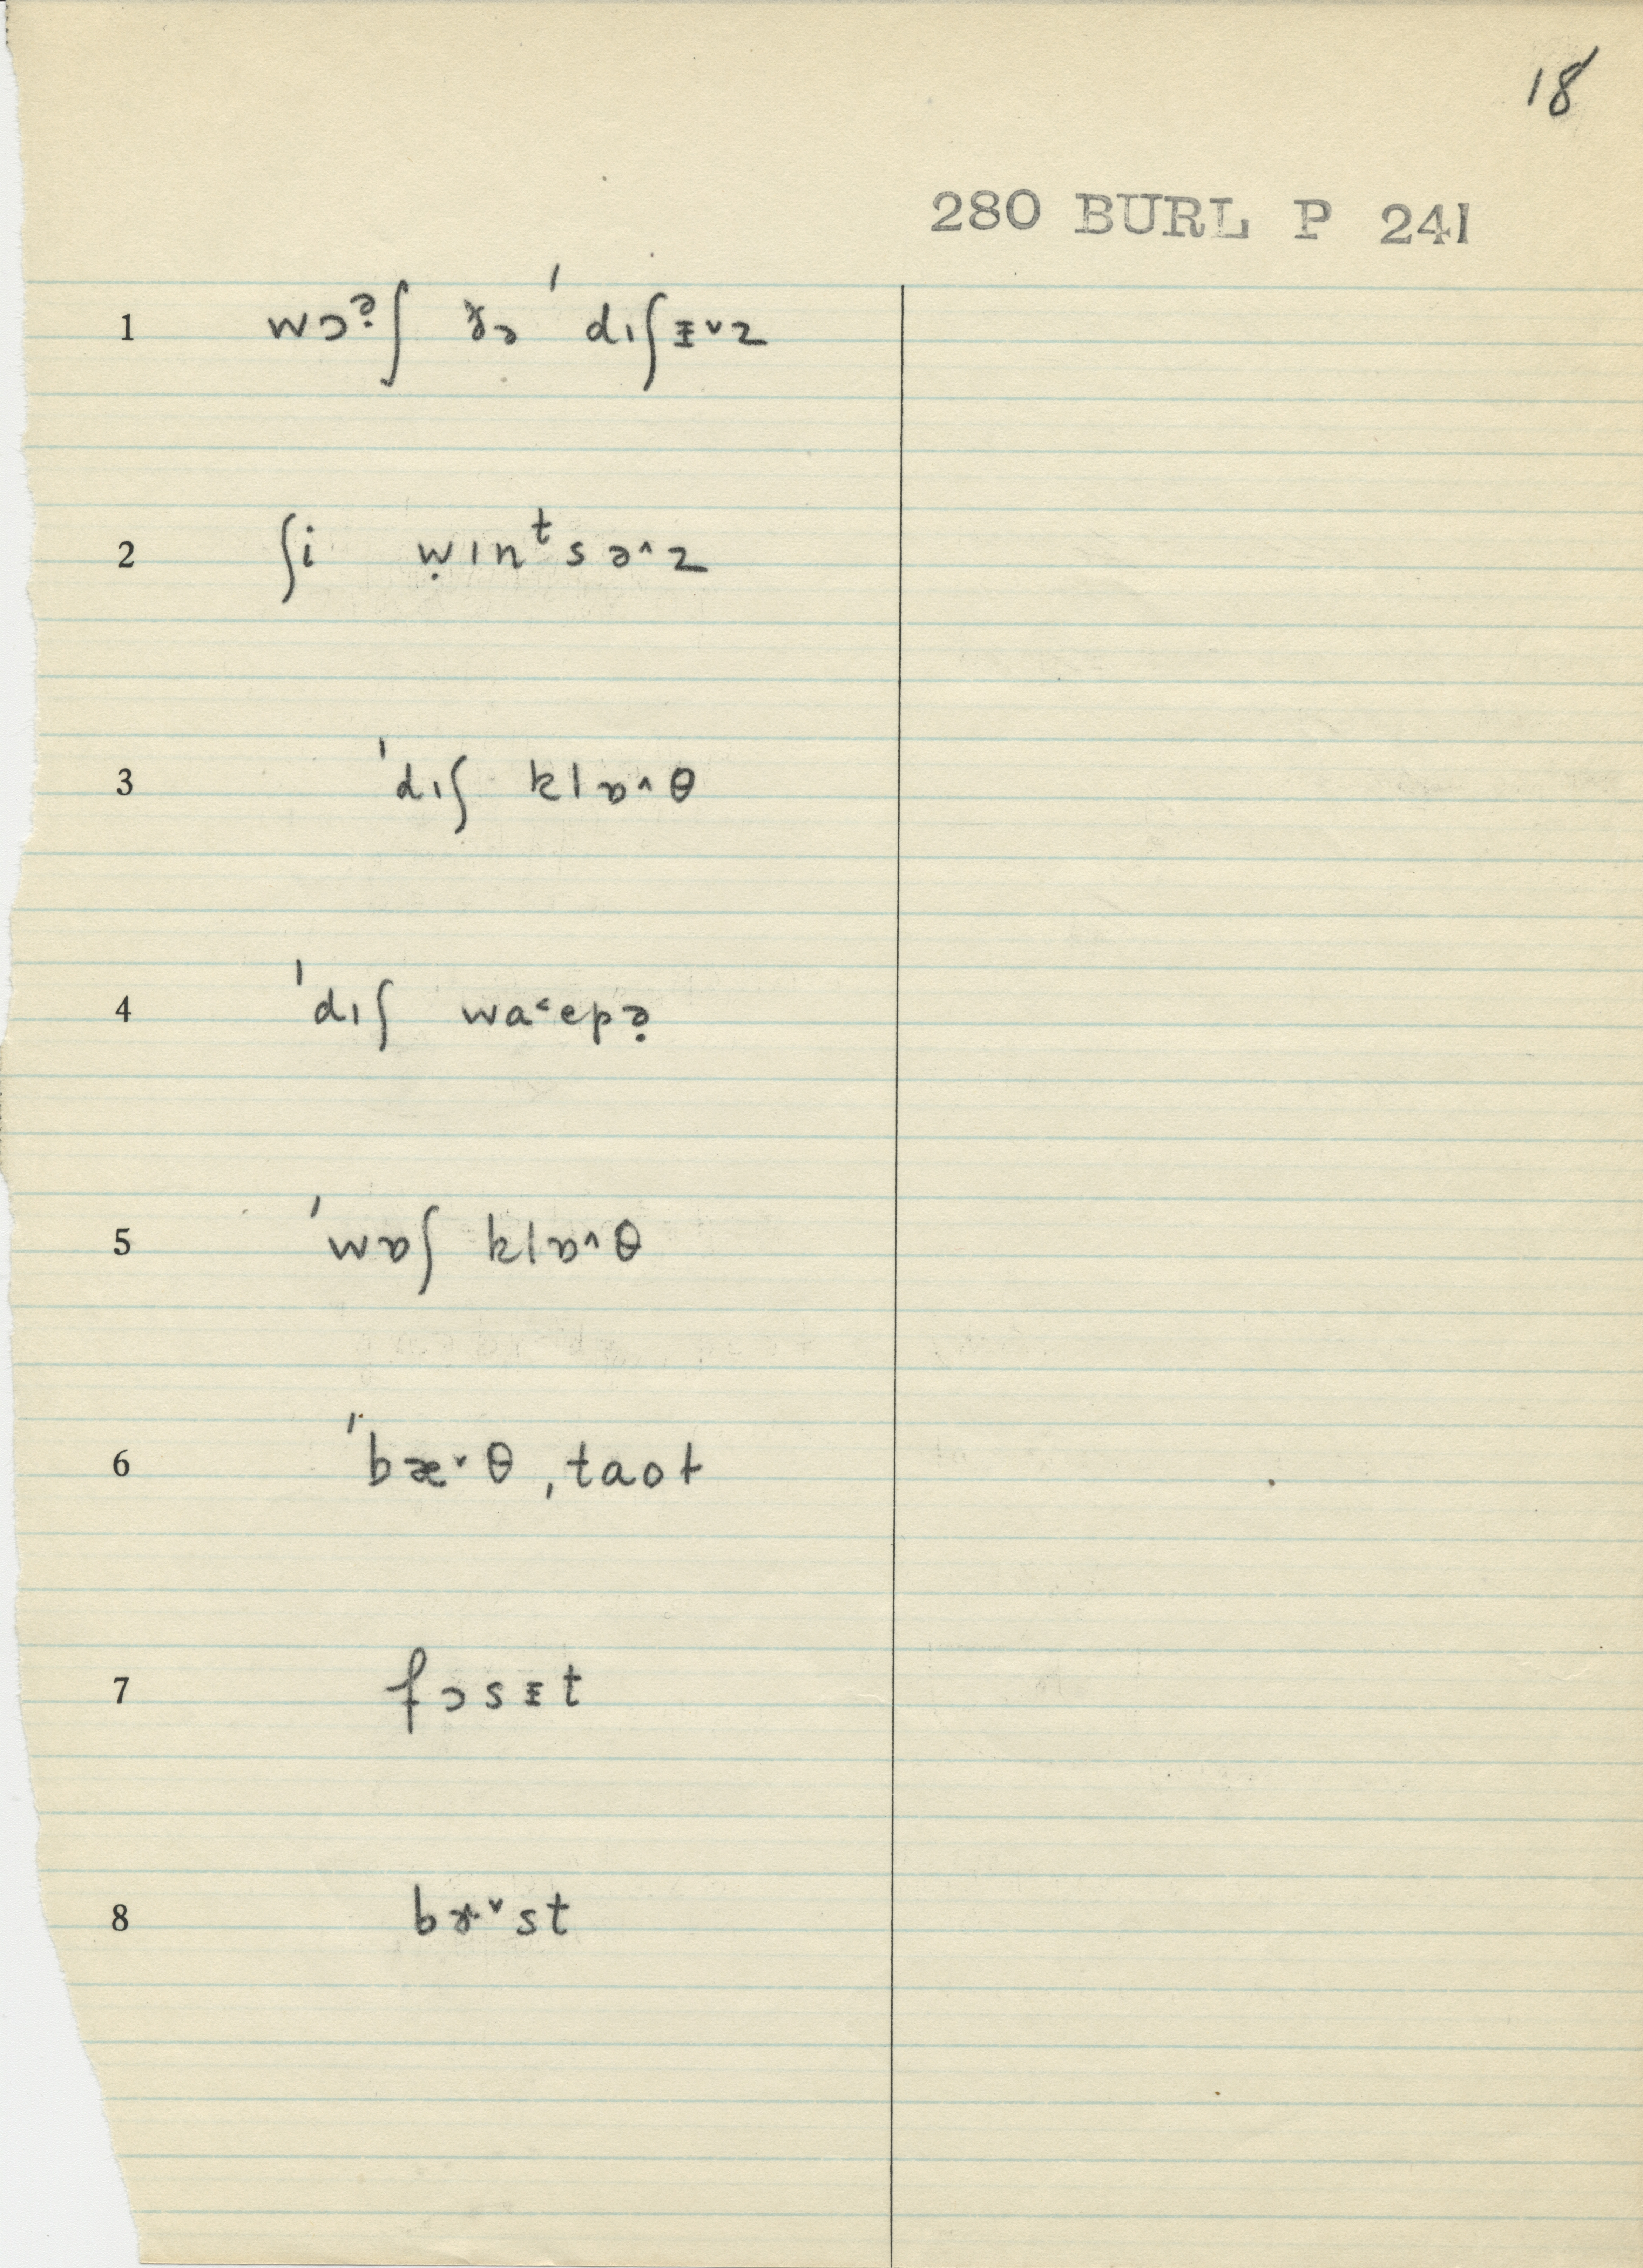 18
280 BURL P 241
1 wɔə̣ʃ ðə ˈdɪʃᵻ˅z
2 ʃi ẉɪnᵗsə^z
3 ˈdɪʃ klɒ^θ
4 ˈdɪʃ wa˂epə̣
5 ˈwɒʃ klɒ^θ
6 ˈbæ˅θ ˌtaot
7 fɔsᵻt
8 bɤ˅st